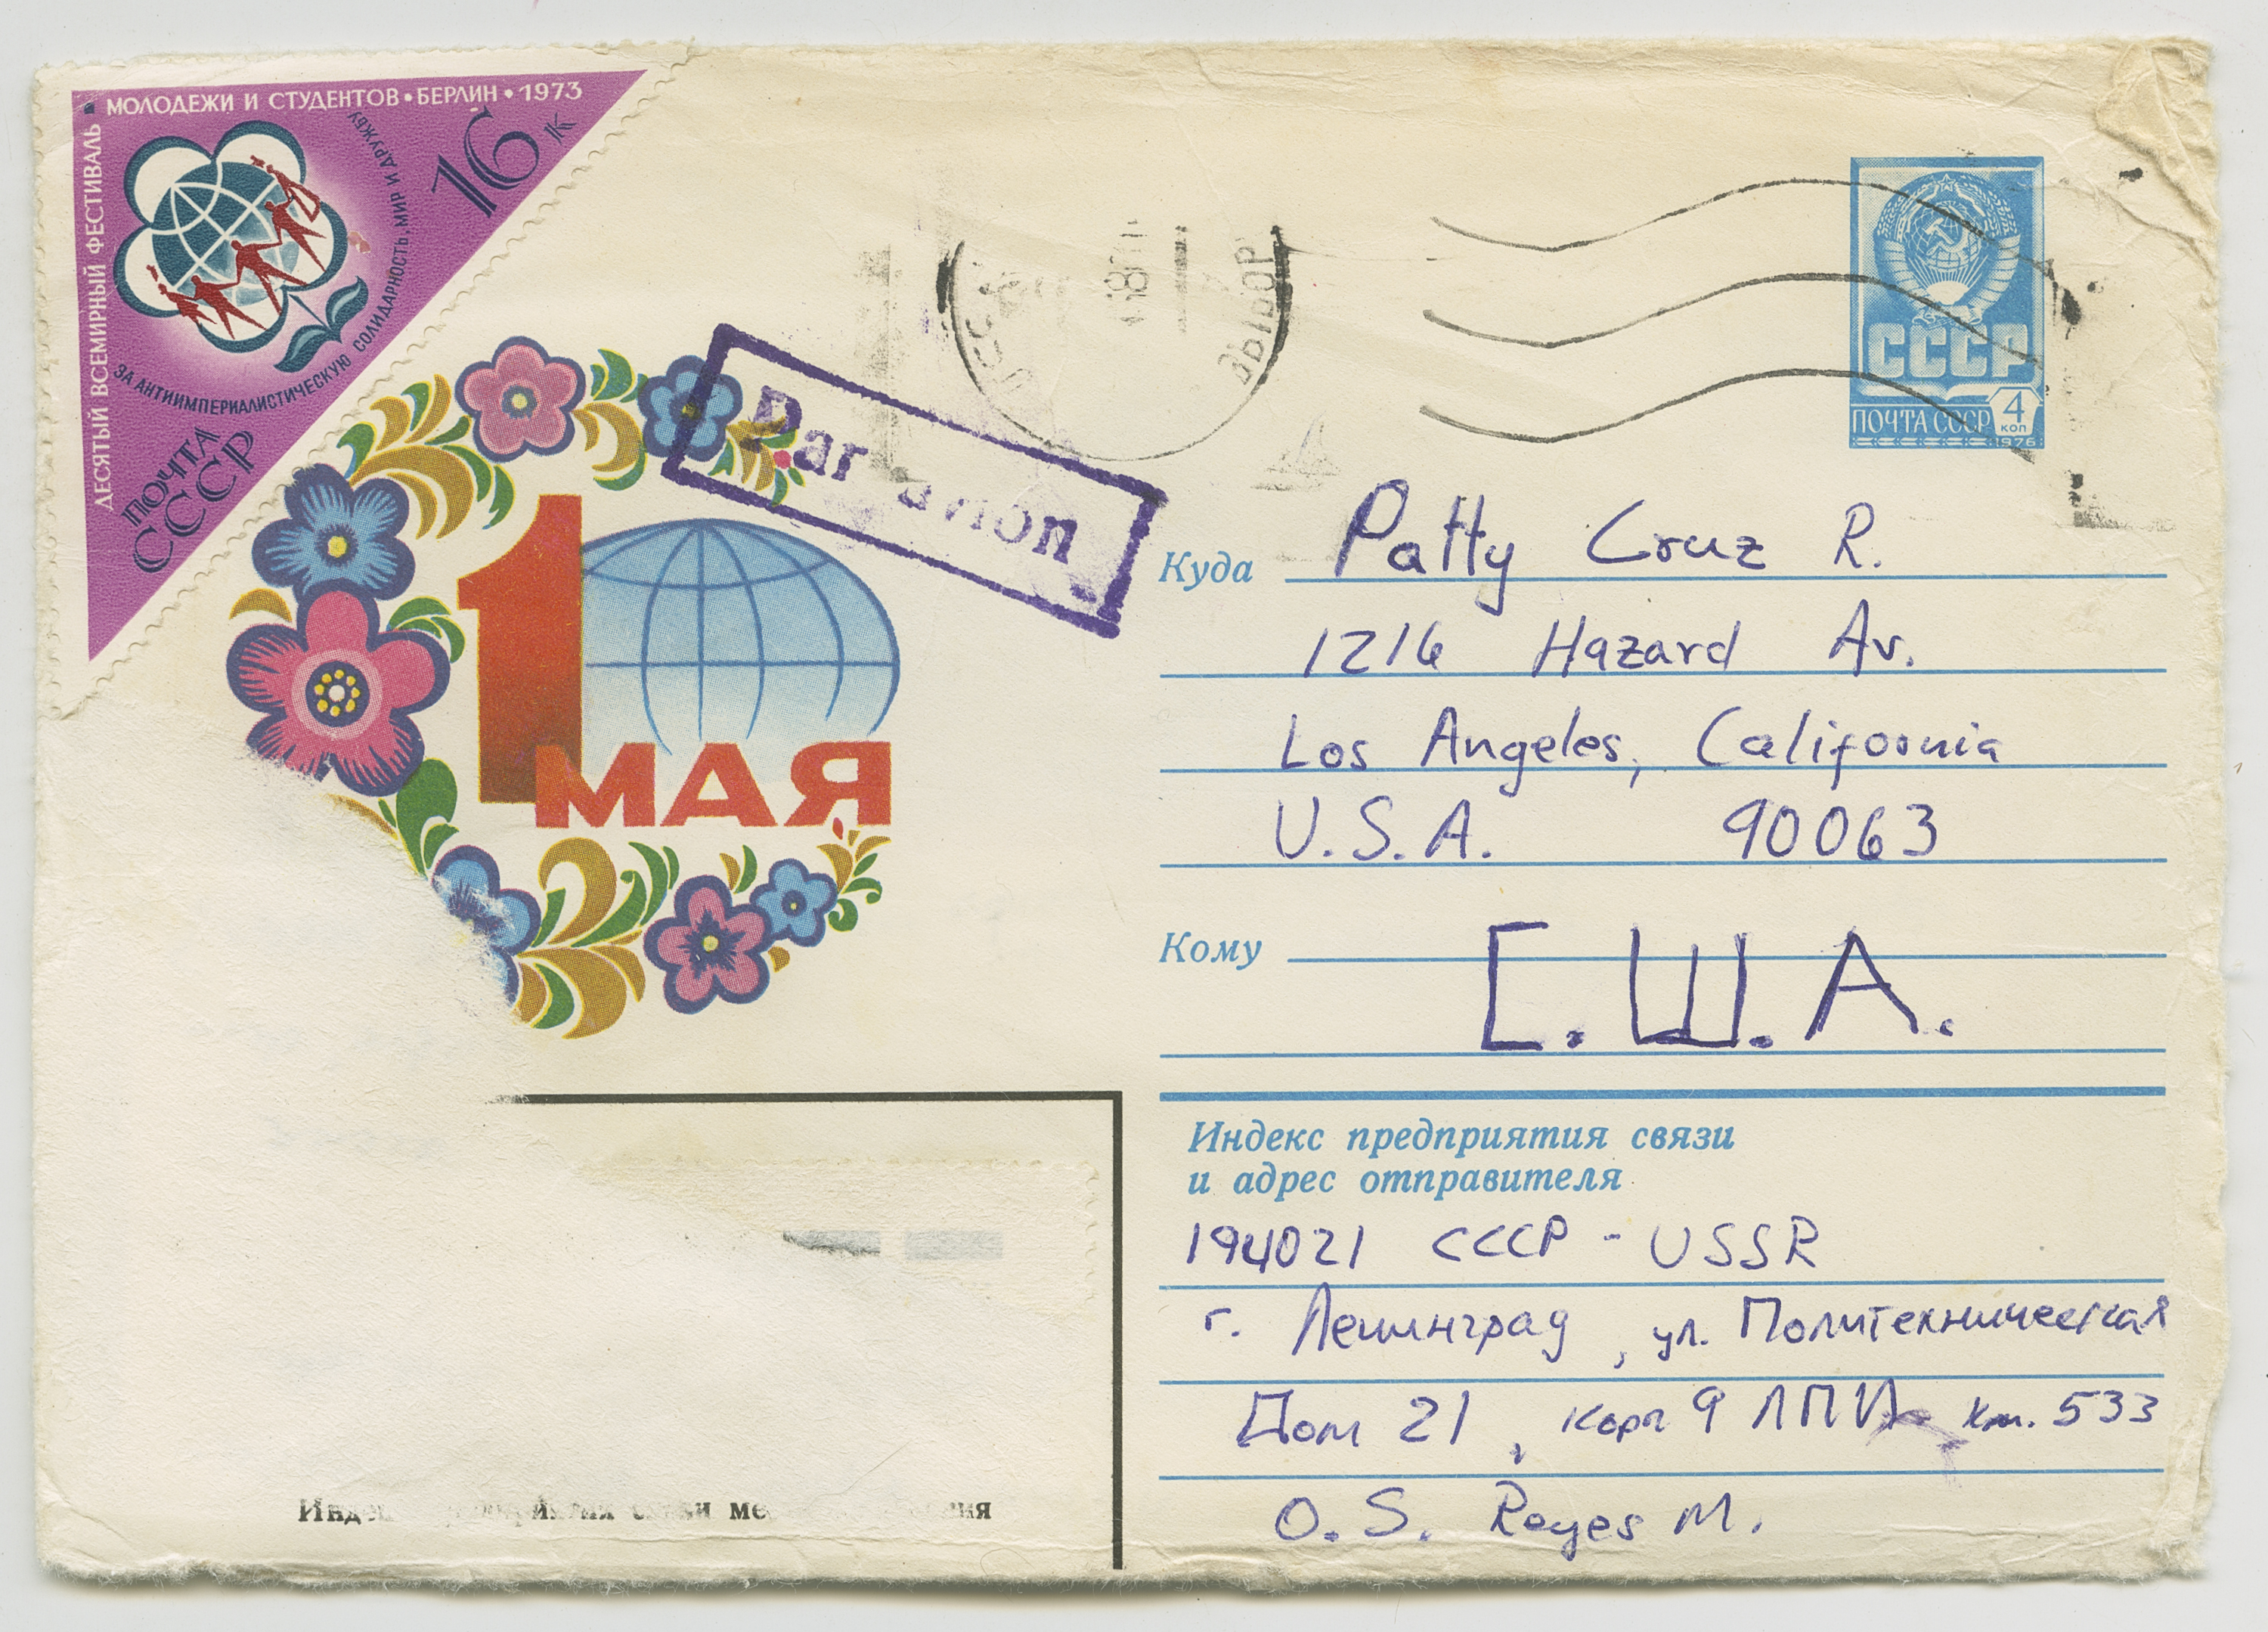 ДЕСЯТЫЙ ВСЕМИРНЫЙ ФЕСТИВАЛЬ • МОЛОДЕЖИ И СТУДЕНТОВ • БЕРЛИН • 1973
ЗА АНТИИМПЕРИАЛИСТИЧЕСКУЮ СОЛИДАРНОСТЬ, МИР И ДРУЖБУ
16 к
ПОЧТА
СССР
СССР
ПОЧТА СССР 4
коп
1976
Par avion
1 МАЯ
Куда Patty Cruz R.
1216 Hazard Av.
Los Angeles, California
U.S.A. 90063
Кому С.Ш.А.
Индекс предприятия связи
и адрес отправителя
194021 СССР - USSR
г. Ленинград, ул. Политехническая
Дом 21, корп 9 ЛПИ 533
O. S. Reyes M.